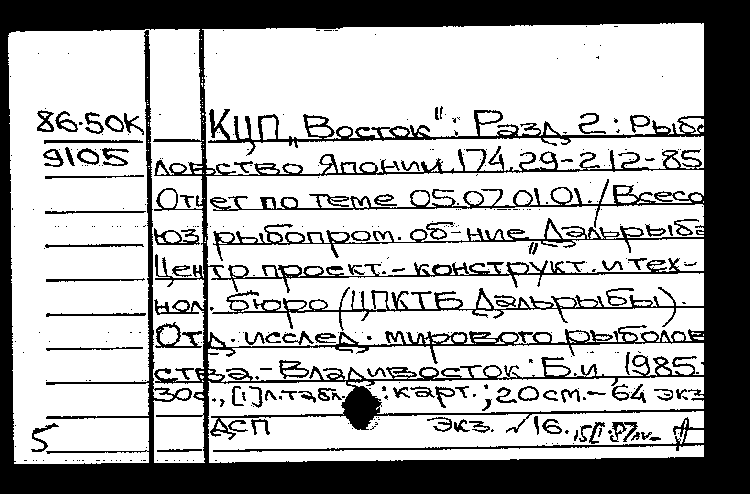 86-50К КЦП „Восток": Разд. 2: Рыбо
9105 ловство Японии. 174.29-2.12-85
Отчет по теме 05.07.01.01. / Всесо
юз. рыбопром. об-ние „Дальрыба"
Центр. проект.-конструкт. и тех-
нол. бюро (ЦПКТБ Дальрыбы).
Отд. исслед. мирового рыболов
ства.-Владивосток: Б.и., 1985.-
30с., [1]л.табл.: карт.; 20см.-64 экз
ДСП экз. √16.
5